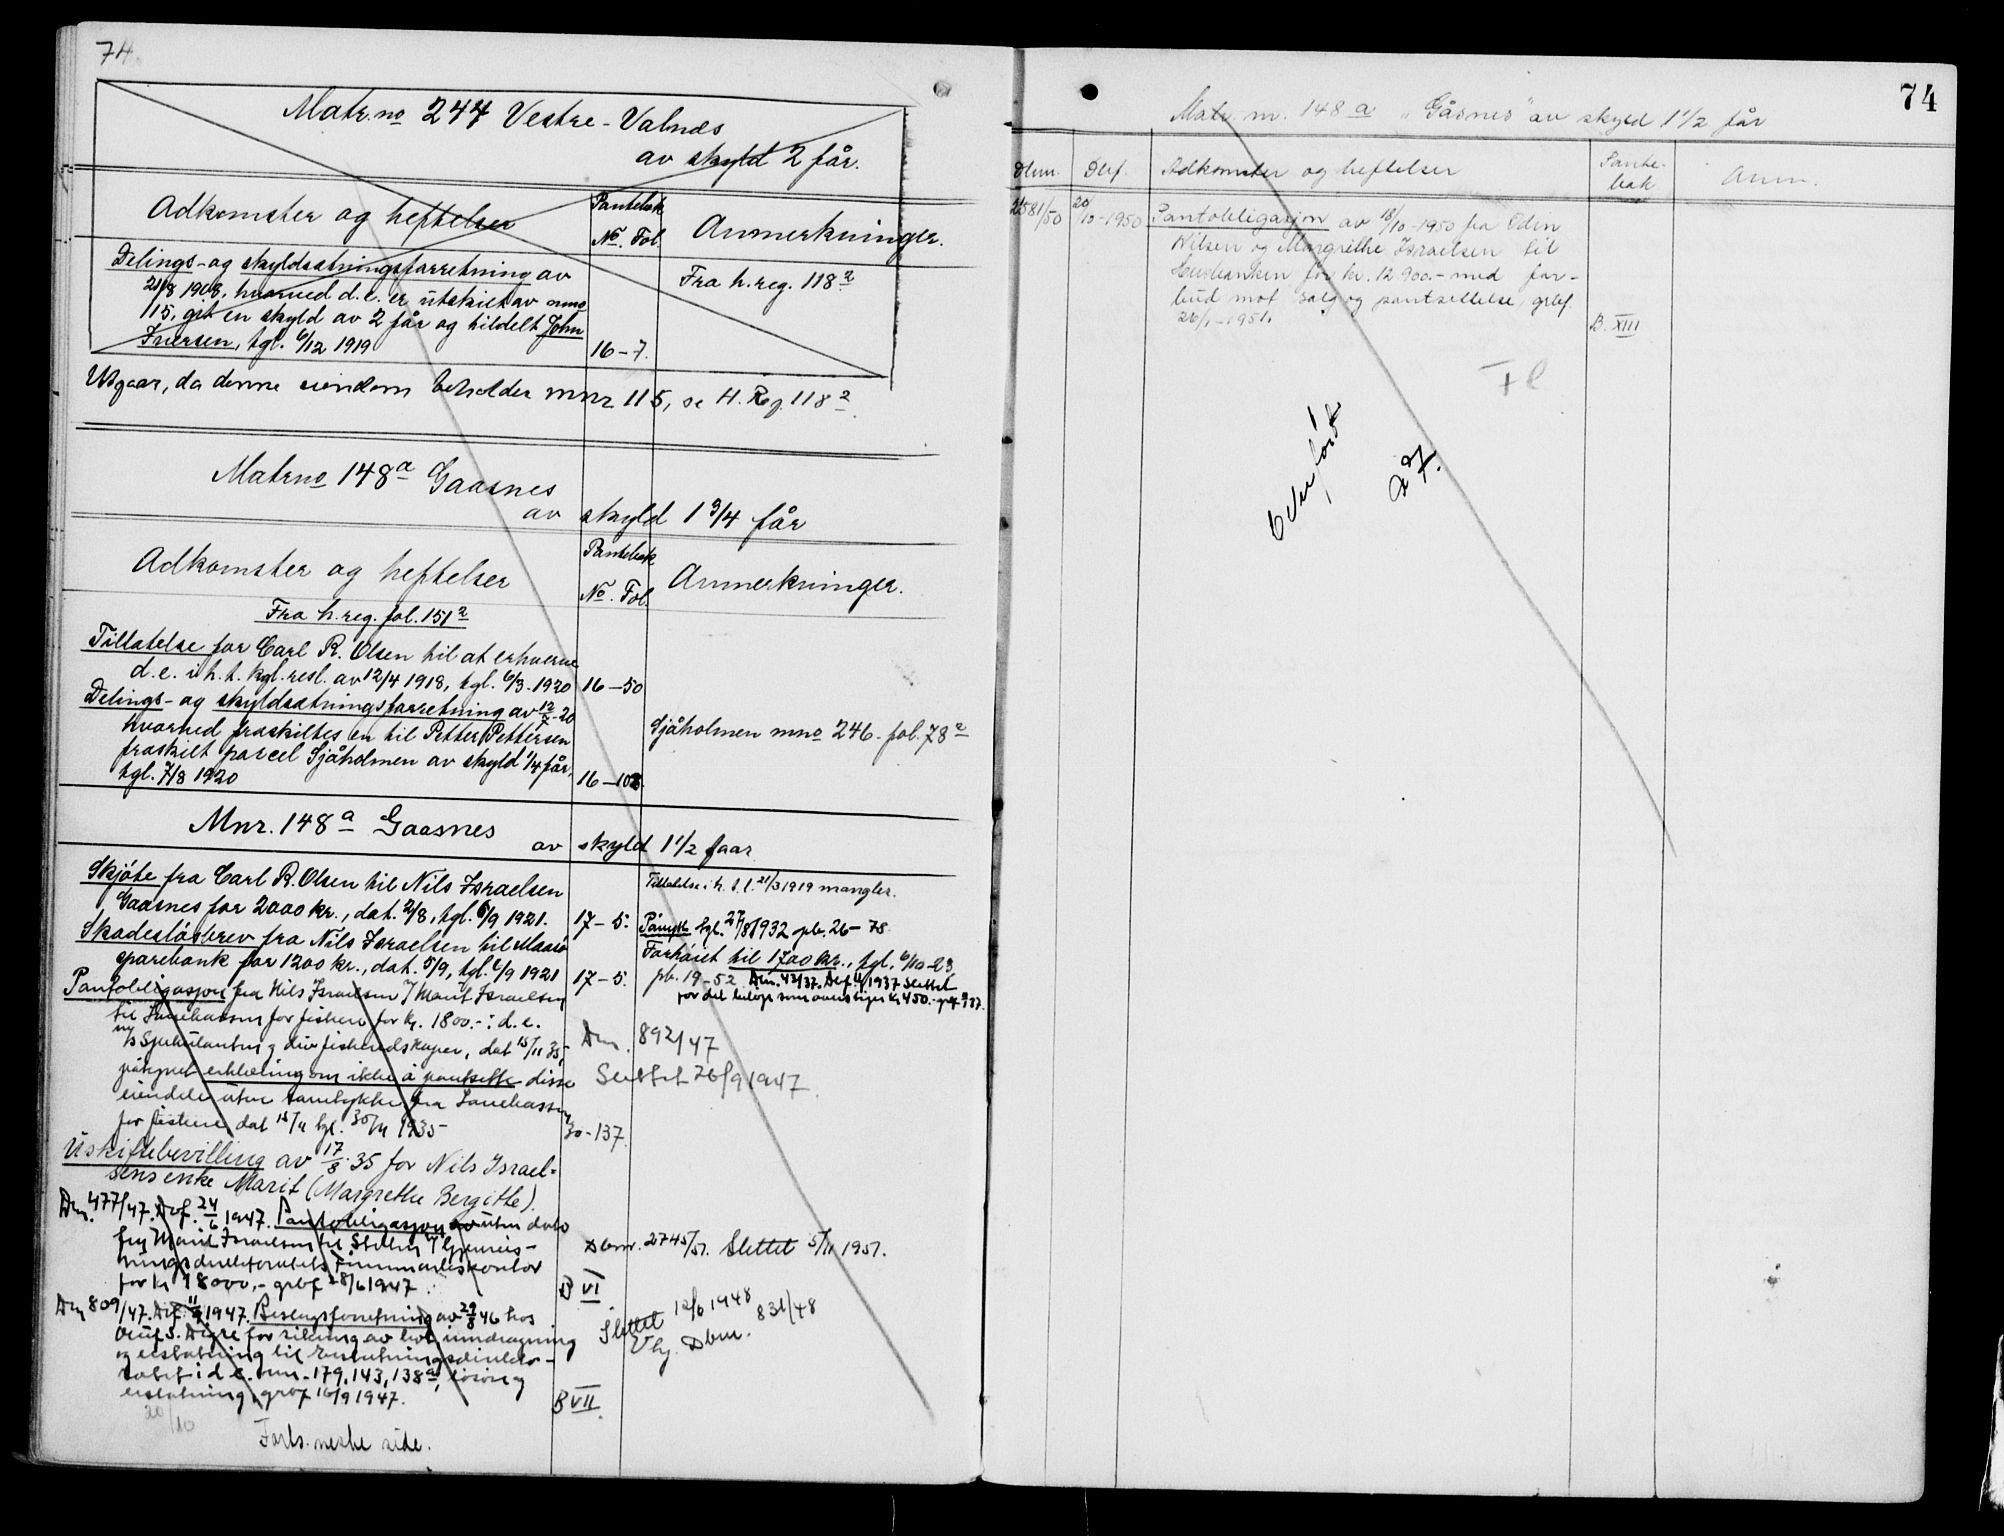 74
Matr.no 247 Vestre-Valnes
av skyld 2 får.
Adkomster og heftelser
Pantebok
No. Fol.
Anmerkninger.
Delings- og skyldsætningsforretning av
21/8 1908, hvorved d.e. er utskilt av mno
115, git en skyld av 2 får og tildelt John
Iversen, tgl. 6/12 1919
16-7.
Fra h.reg. 118 2
Utgaar, da denne eiendom beholder mnr 115, se H. Reg. 118 2
Matrno 148 a Gaasnes
av skyld 1 3/4 får
Adkomster og heftelser
Pantebok
No. Fol.
Anmerkninger.
Fra h.reg. fol. 151 2
Tillatelse for Carl R. Olsen til at erhverve
d.e. i h.t. kgl. resl. av 12/4 1918, tgl. 6/3-1920
16-50
Delings- og skyldsætningsforretning av 12/7-20
hvorved fraskiltes en til Petter Pettersen
fraskilt parcel Sjåholmen av skyld 1/4 får,
tgl. 7/8 1920
16-108.
Sjåholmen mno 246. fol. 78 2
Mnr. 148 a Gaasnes
av skyld 1 1/2 faar
Skjøte fra Carl R. Olsen til Nils Israelsen
Gaasnes for 2000 kr., dat. 2/8, tgl. 6/9 1921.
17-5.
Tillatelse i h. t. l. 21/3 1919 mangler.
Skadesløsbrev fra Nils Israelsen til Maasø
sparebank for 1200 kr., dat. 5/9, tgl. 6/9 1921
17-5.
tgl. 27/8 1932 pb. 26-78.
Forhøiet til 1700 kr., tgl. 6/10-23
pb. 19-52. Dnr. 42/37. 1937 slettet
for det beløp som overstiger kr 450.-
Pantobligasjon fra Nils Israelsen / Marit Israelsen
til Lånekassen for fiskere for kr. 1800.- i d.e.
div fiskeredskaper, dat 15/11 35,
påtegnet erklæring om ikke å pantsette disse
eiendele uten samtykke fra Lånekassen
for fiskere dat 15/11 tgl. 30/11 1935
30-137.
Dnr. 892/47
Slettet 26/9 1947
Uskiftebevilling av 17/8.35 for Nils Israel-
sens enke Marit (Margrethe Bergitte).
Dnr. 477/47. Def. 24/6 1947. Pantobligasjon uten dato
fra Marit Israelsen til Statens Gjenreis-
ningsdirektorats Finnmarkskontor
for kr 18000,- grbf 28/6 1947
B VI
Dbnr. 2745/51. Slettet 5/11 1951.
Dnr 809/47. Def. 11/9 1947. Beslagsforretning av 29/8 46 hos
for sikring av inndragning
og erstatning til Erstatningsdirekto-
ratet i d.e. mnr. 179, 143, 138 a, løsøre og
erstatning, grbf 16/9 1947.
B VII
Slettet 12/6 1948 831/48
Vhj. Dbnr.
20/10
Forts. neste side.
74
Matr. nr. 148 a "Gåsnes" av skyld 1 1/2 får
Dbnr.
Dbf.
Adkomster og heftelser
Pante-
bok
Anm.
2581/50
20/10-1950
Pantobligasjon av 18/10-1950 fra Odin
Nilsen og Margrethe Israelsen til
Husbanken for kr. 12 900.- med for-
bud mot salg og pantsettelse, grbf.
26/1-1951.
B. XIII
Overført